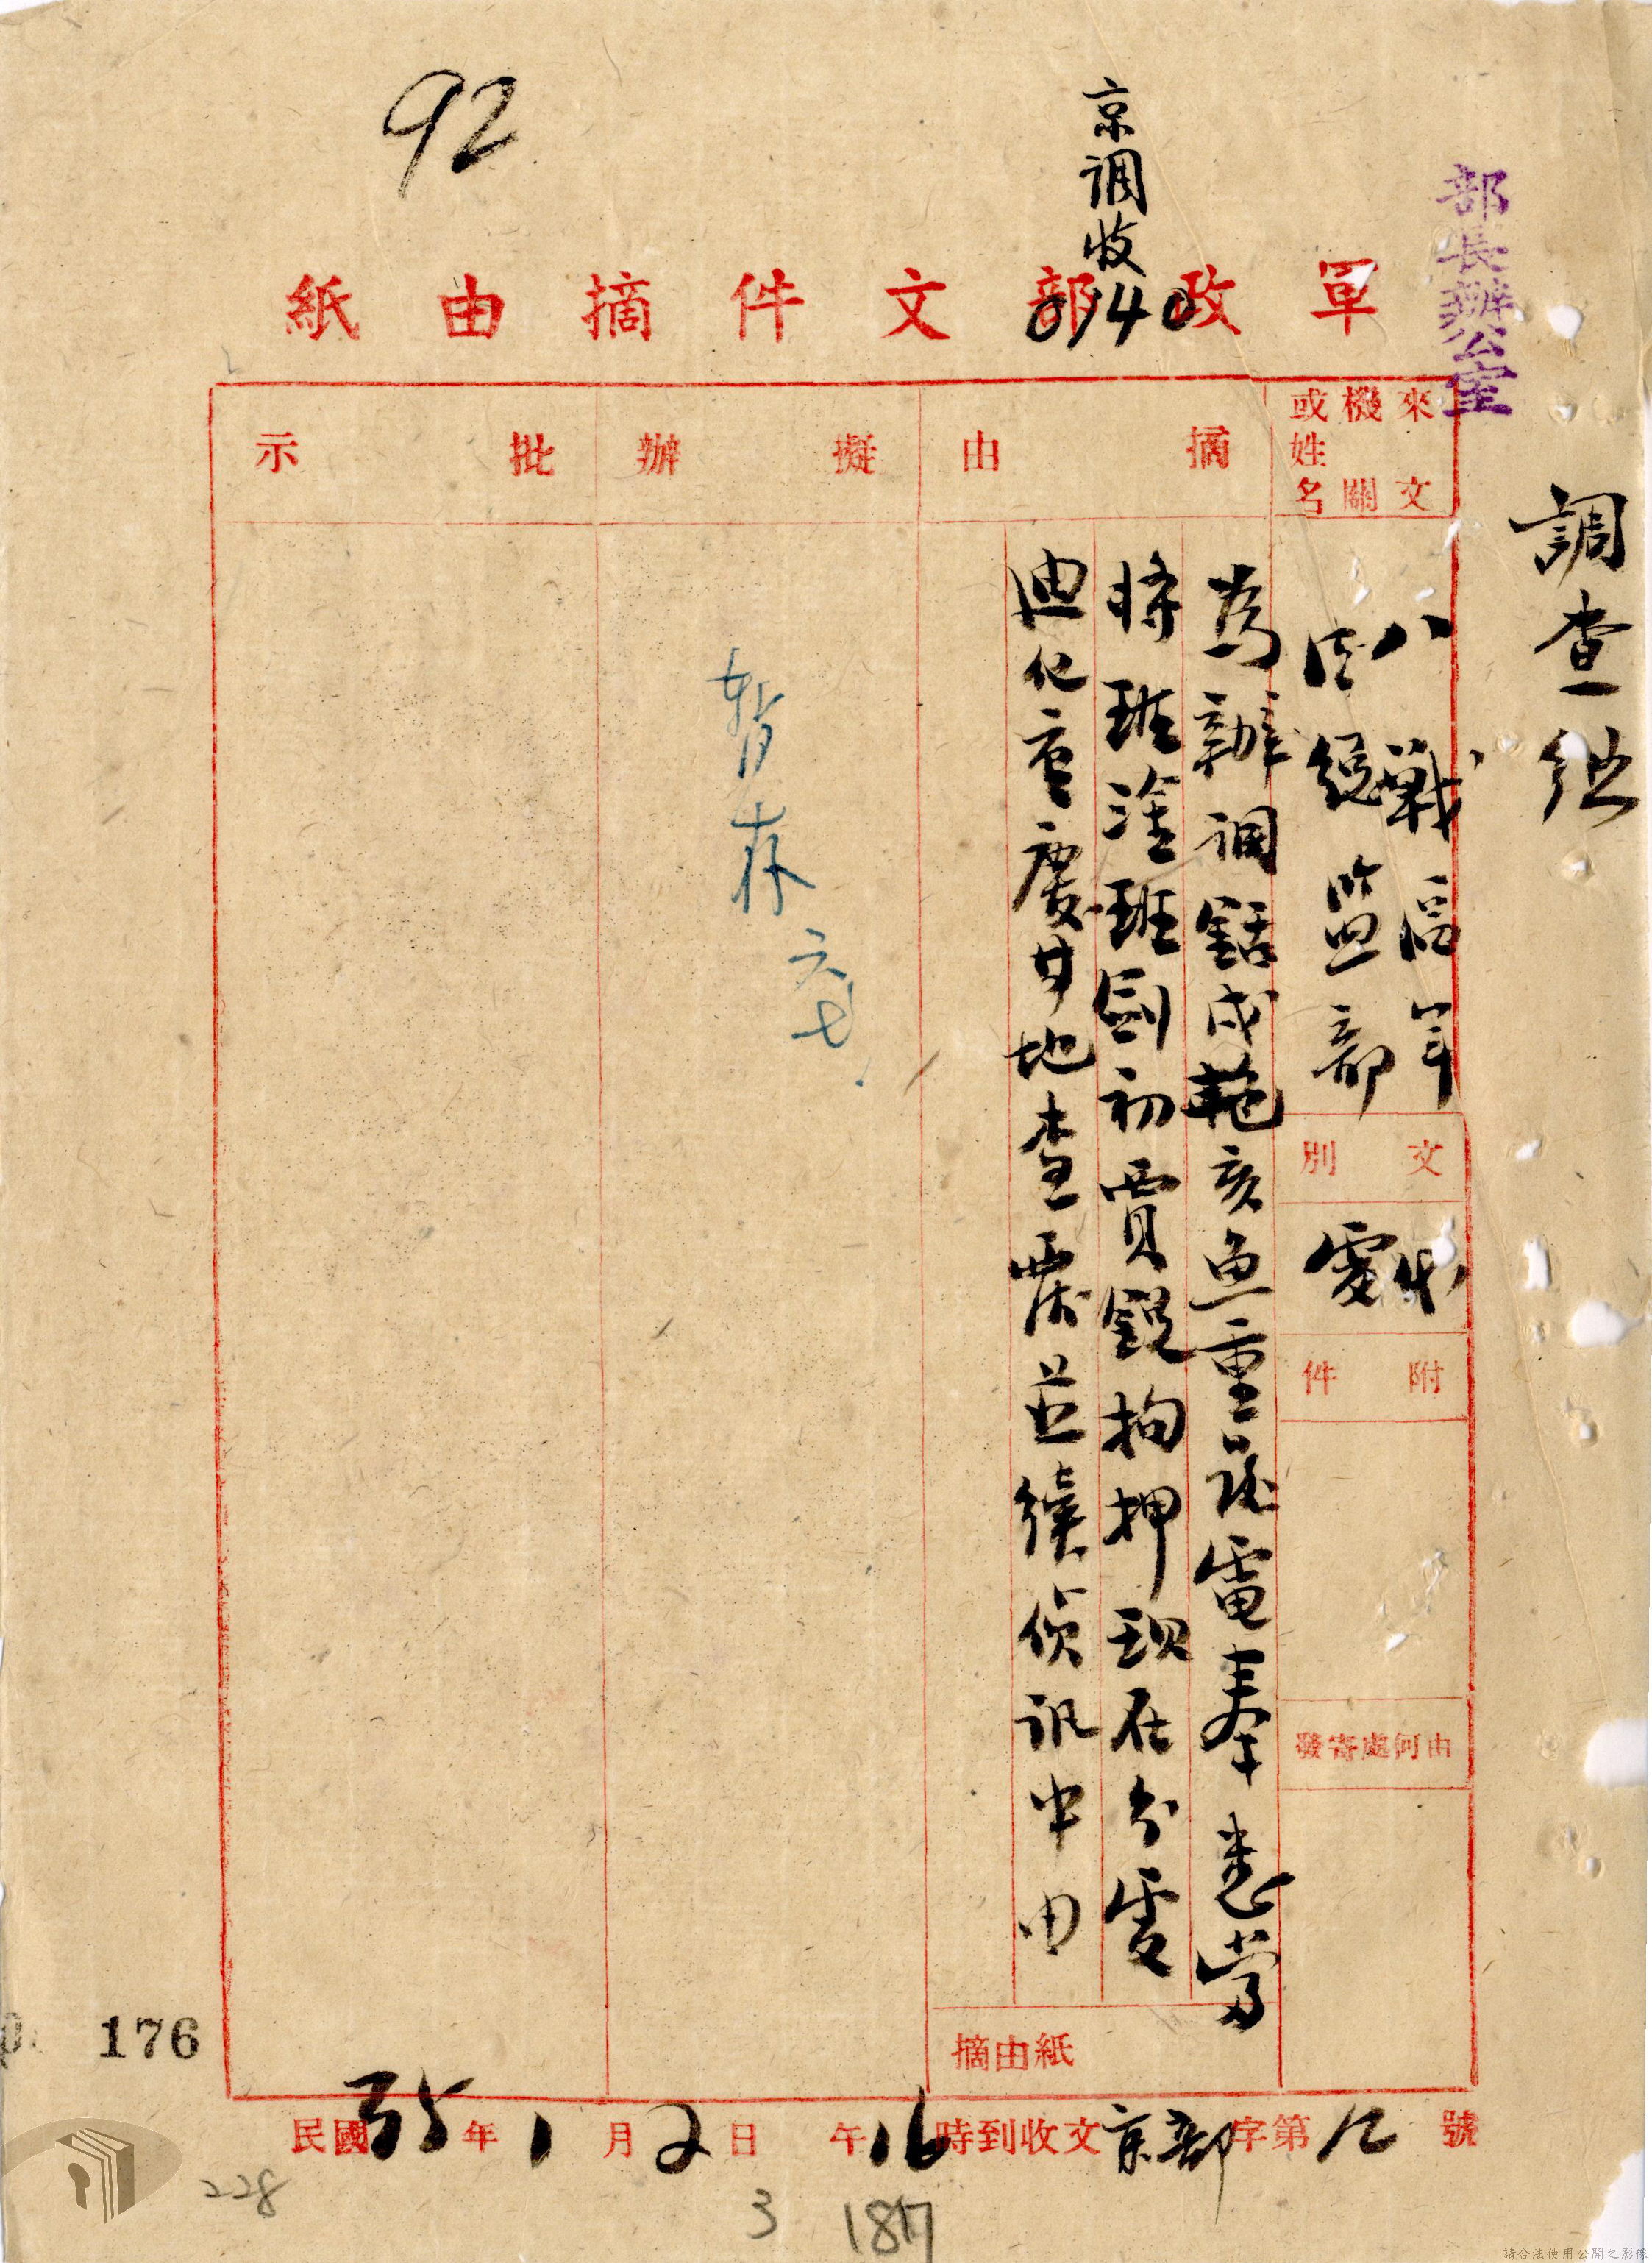 92
京調收
0140
部長辦公室
軍政部文件摘由紙
調查組
來文機關或姓名
摘由
擬辦
批示
八戰區軍
法總監部
文別
代電
附件
由何處寄發
為辦調銛戌範亥魚重電奉悉當
將班淦班劍初賈銳拘押現在分處
迪化重慶等地查覆並續偵訊中由
暫存
六七
摘由紙
民國35年1月2日午16時到收文京部字第12號
176
228
3
1817
請合法使用公開之影像